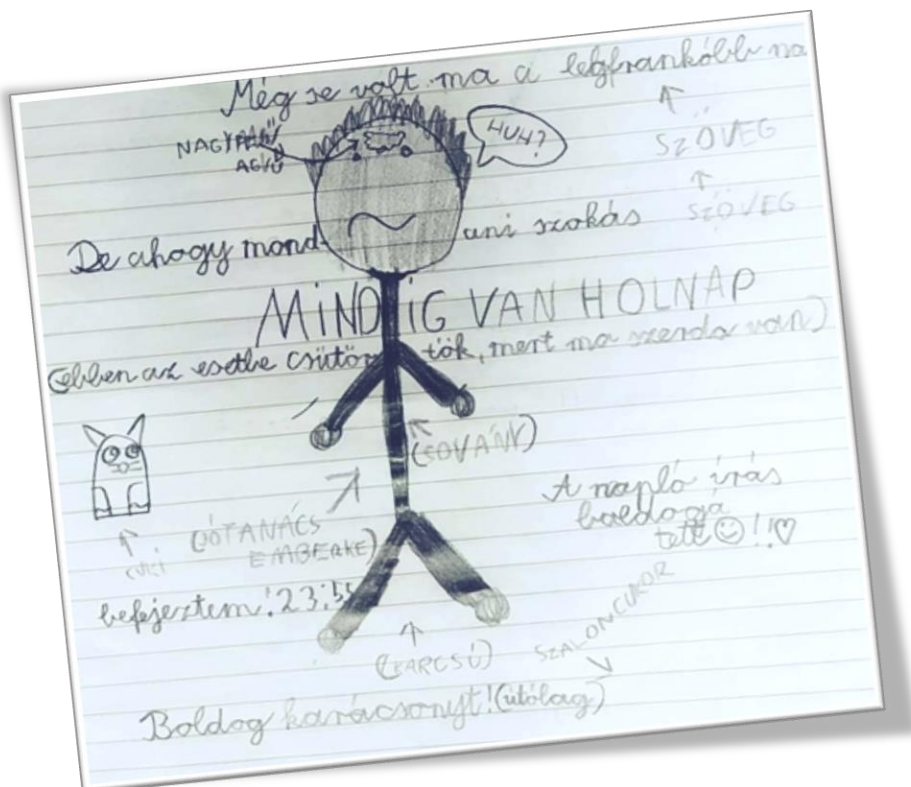 Még se volt ma a legfrankóbb na
NAGY
AGYÚ
HUH?
SZÖVEG
SZÖVEG
De ahogy mond- ani szokás
MINDIG VAN HOLNAP
(ebben az esetbe csütör tök, mert ma szerda van)
(SOVÁNY)
A napló írás
boldogá
tett ☺!!♡
(JÓTANÁCS
EMBERKE)
cuci
befejeztem!23:55
(KARCSÚ)
SZALONCUKOR
Boldog karácsonyt!(utólag)